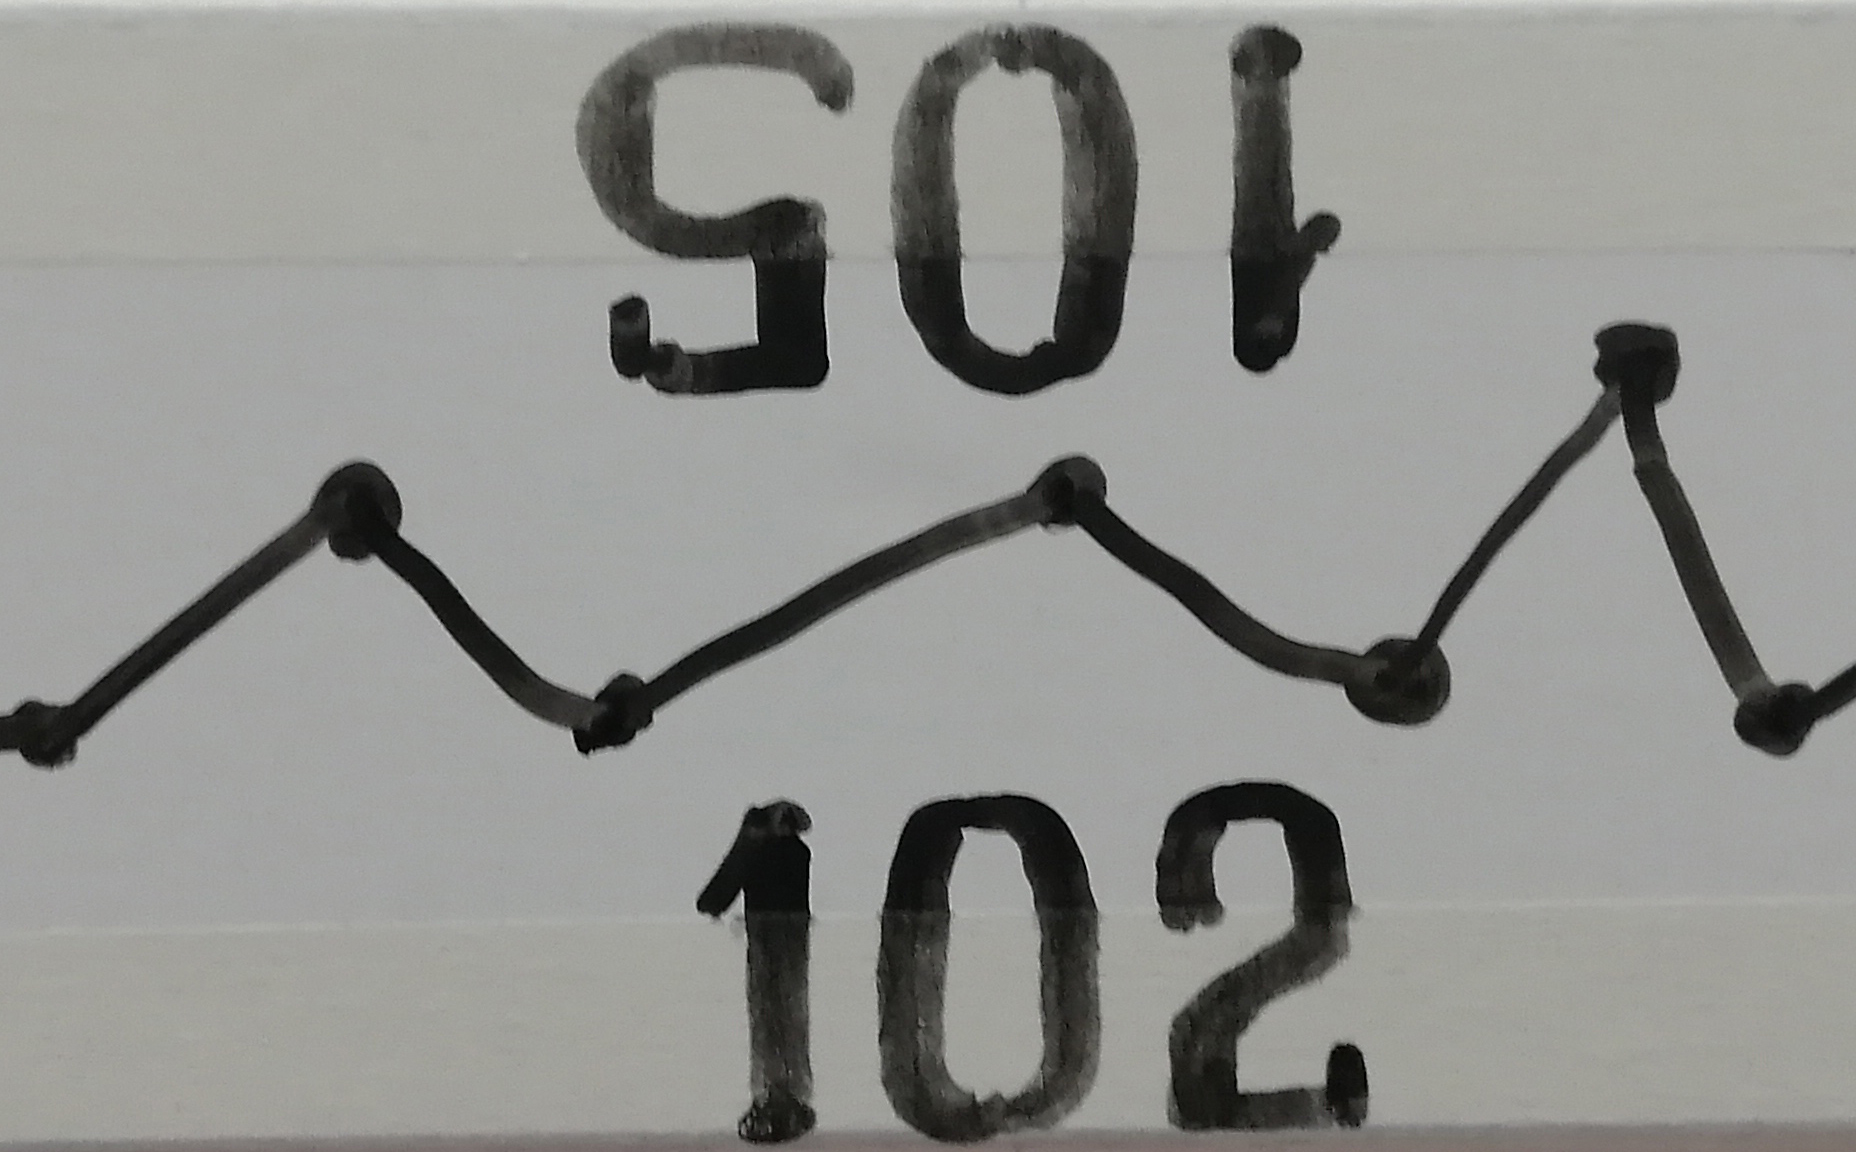 105
102